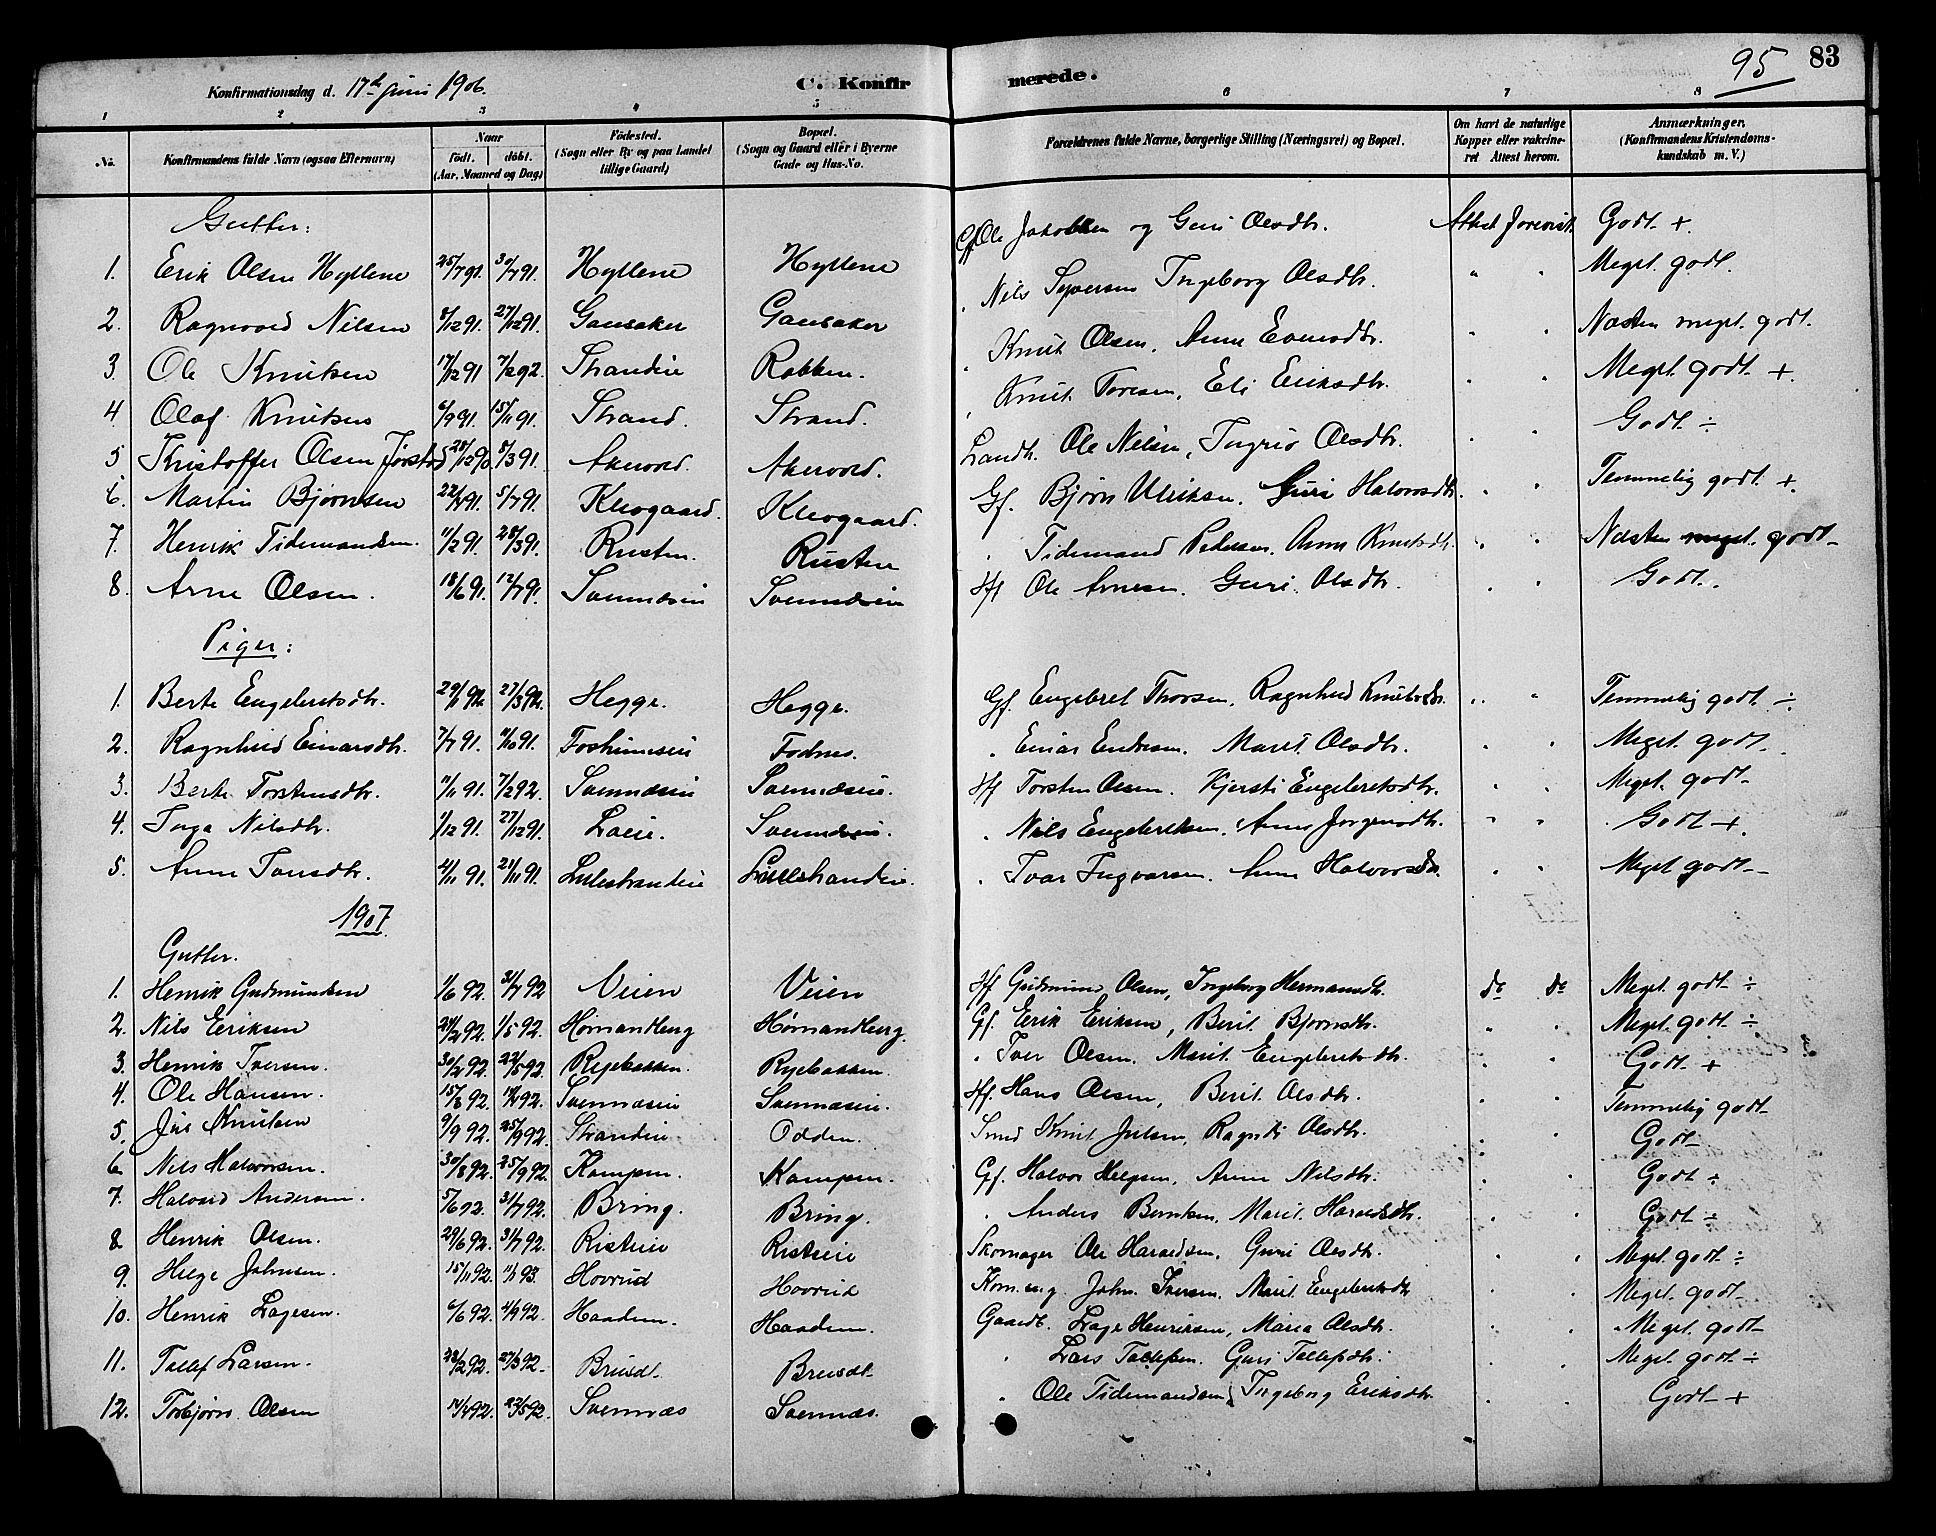 95 83
Konfirmationsdag d. 17de Juni 1906. C. Konfirmerede.
1 2 3 4 5 6 7 8
No. Konfirmandens fulde Navn (ogsaa Efternavn) Naar födt. döbt. (Aar, Maaned og Dag) Födested. (Sogn eller By og paa Landet tillige Gaard) Bopæl. (Sogn og Gaard eller i Byerne Gade og Hus-No. Forældrenes fulde Navne, borgerlige Stilling (Næringsvei) og Bopæl. Om havt de naturlige Kopper eller vakcineret Attest herom. Anmærkninger, (Konfirmandens Kristendomskundskab m. V.)
Gutter:
1. Erik Olsen Hyllene 25/7 91. 30/7 91. Hyllene Hyllene Gf Ole Jakobsen og Guri Olsdtr. Attest forevist Godt +
2. Ragnvald Nilsen 8/12 91. 27/12 91. Gausaker Gausaker " Nils Syversen Ingeborg Olsdtr. " " Meget godt.
3. Ole Knutsen 17/12 91 7/2 92. Strandeie Robken. " Knut Olsen, Anne Evensdtr. " " Næsten meget godt.
4 Olaf Knutsen 6/9 91. 15/11 91. Strand. Strand. " Knut Toresen, Eli Eriksdtr. " " Meget godt +
5 Kristoffer Olsen Jørstad 28/12 90 8/3 91. Akervold. Akervold. Landh. Ole Nilsen, Ingrid Olsdtr. " " Godt ÷
6. Martin Bjørnsen 22/4 91. 5/7 91. Klevgaard. Klevgaard. Gf. Bjørn Ulriksen, Guri Halvorsdtr. " " Temmelig godt +
7. Henrik Tidemandsen. 11/2 91. 28/3 91. Rusten. Rusten " Tidemand Pedersen. Anne Knutsdtr. " " Næsten meget godt
8. Arne Olsen. 18/6 91. 12/7 91. Svennæseie Svennæseie Hf Ole Arnesen. Guri Olsdtr. " " Godt.
Piger:
1. Berte Engebretsdtr. 29/1 92. 27/3 92. Hegge. Hegge. Gf. Engebret Thorsen, Ragnhild Knutsdtr. " " Temmelig godt ÷
2. Ragnhild Einarsdtr. 7/7 91. 11/10 91. Fodnes. " Einar Endresen. Marit Olsdtr. " " Meget godt
3. Berte Torstensdtr. 11/11 91. 7/2 92. Svennæseie Svennæseie. Hf Torsten Olsen. Kjersti Engebretsdtr. " " Meget godt
4. Inga Nilsdtr. 1/12 91. 27/12 91. Loeie. Svennæseie. " Nils Engebretsen. Anne Jørgensdtr. " " Godt +.
5. Anne Ivarsdtr. 4/11 91. 21/11 91. Lislestrandeie Lislestrandeie. " Ivar Ingvarsen. Anne Halvorsdtr. " " Meget godt
1907
Gutter.
1. Henrik Gudmundsen 1/6 92. 31/7 92 Veien Veien Hf Gudmund Olsen, Ingeborg Hermansdtr. do do Meget godt ÷
2. Nils Eriksen 24/2 92. 1/5 92. Hømandberg Hømandberg. Gf. Erik Eriksen, Berit Bjørnsdtr. " " Meget godt ÷
3. Henrik Iversen. 30/4 92. 22/5 92. Ryebakken. Ryebakken. " Iver Olsen. Marit Engebretsdtr. " " Godt +
4. Ole Hansen. 15/6 92. 17/7 92. Svennæseie Svennæseie. Hf. Hans Olsen, Berit Olsdtr. " " Temmelig godt
5. Jul Knutsen 9/9 92. 25/9 92. Strandeie Odden. Smed Knut Julsen, Ragndi Olsdtr. " " Godt
6 Nils Halvorsen. 30/8 92. 25/9 92. Kampen. Kampen. Gf. Halvor Helgesen, Anne Nilsdtr. " " Godt ÷
7. Halvard Andersen. 5/6 92. 31/7 92. Bring. Bring. " Anders Berntsen. Marit Haraldsdtr. " " Godt ÷
8 Henrik Olsen. 29/6 92. 31/7 92. Risteeie Risteeie Skomager Ole Haraldsen. Guri Olsdtr. " " Meget godt ÷
9. Helge Johnsen. 15/11 92. 11/1 93. Hovrud Hovrud John Iversen. Marit Engebretsdtr. " " Meget godt
10. Henrik Lagesen. 6/6 92. 4/9 92. Haadem. Haadem. Gaardb. Lage Henriksen, Maria Olsdtr. " " Meget godt
11. Tollef Larsen. 23/2 92. 27/3 92. Breidt. Breidt. " Lars Tollefsen. Guri Tollefsdtr. " " Meget godt ÷
12. Torbjørn Olsen 14/4 92. 22/5 92. Svennæs Svennæs. " Ole Tidemandsen, Ingeborg Eriksdtr. " " Godt +